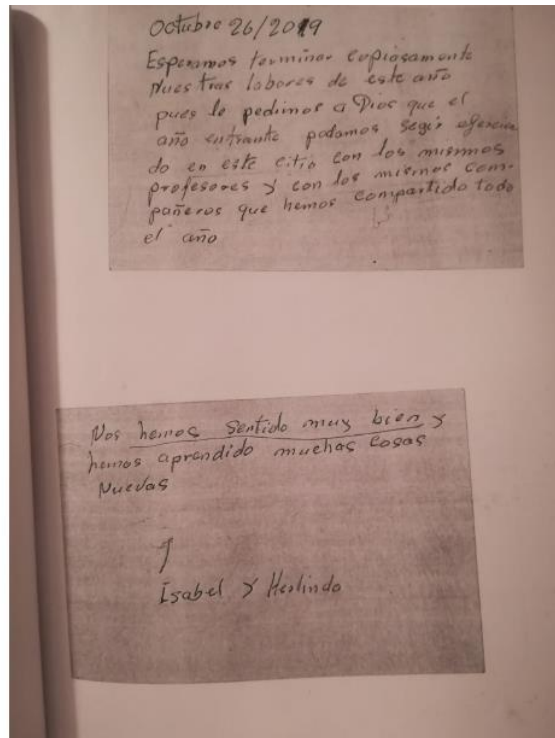 Octubre 26/2019
Esperamos terminar copiosamente
Nuestras labores de este año
pues le pedimos a Dios que el
año entrante podamos segir ejercien
do en este citio con los mismos
profesores y con los mismos com-
pañeros que hemos compartido todo
el año
Nos hemos Sentido muy bien y
hemos aprendido muchas Cosas
Nuevas
Isabel y Herlindo